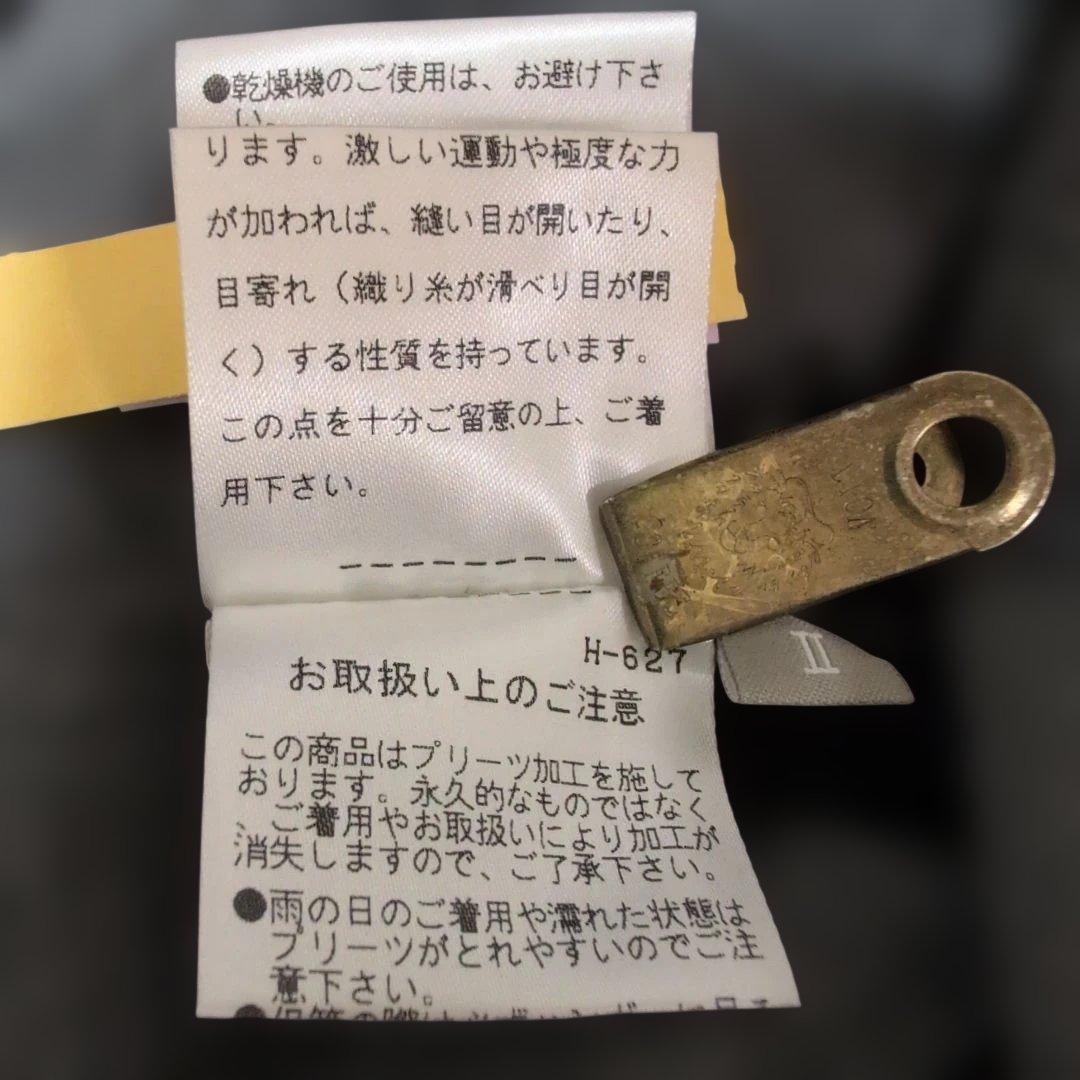 ●乾燥機のご使用は、お避け下さ
い。
ります。激しい運動や極度な力
が加われば、縫い目が開いたり、
目寄れ（織り糸が滑べり目が開
く）する性質を持っています。
この点を十分ご留意の上、ご着
用下さい。
LION
II
H-627
お取扱い上のご注意
この商品はプリーツ加工を施して
おります。永久的なものではなく
、ご着用やお取扱いにより加工が
消失しますので、ご了承下さい。
●雨の日のご着用や濡れた状態は
プリーツがとれやすいのでご注
意下さい。